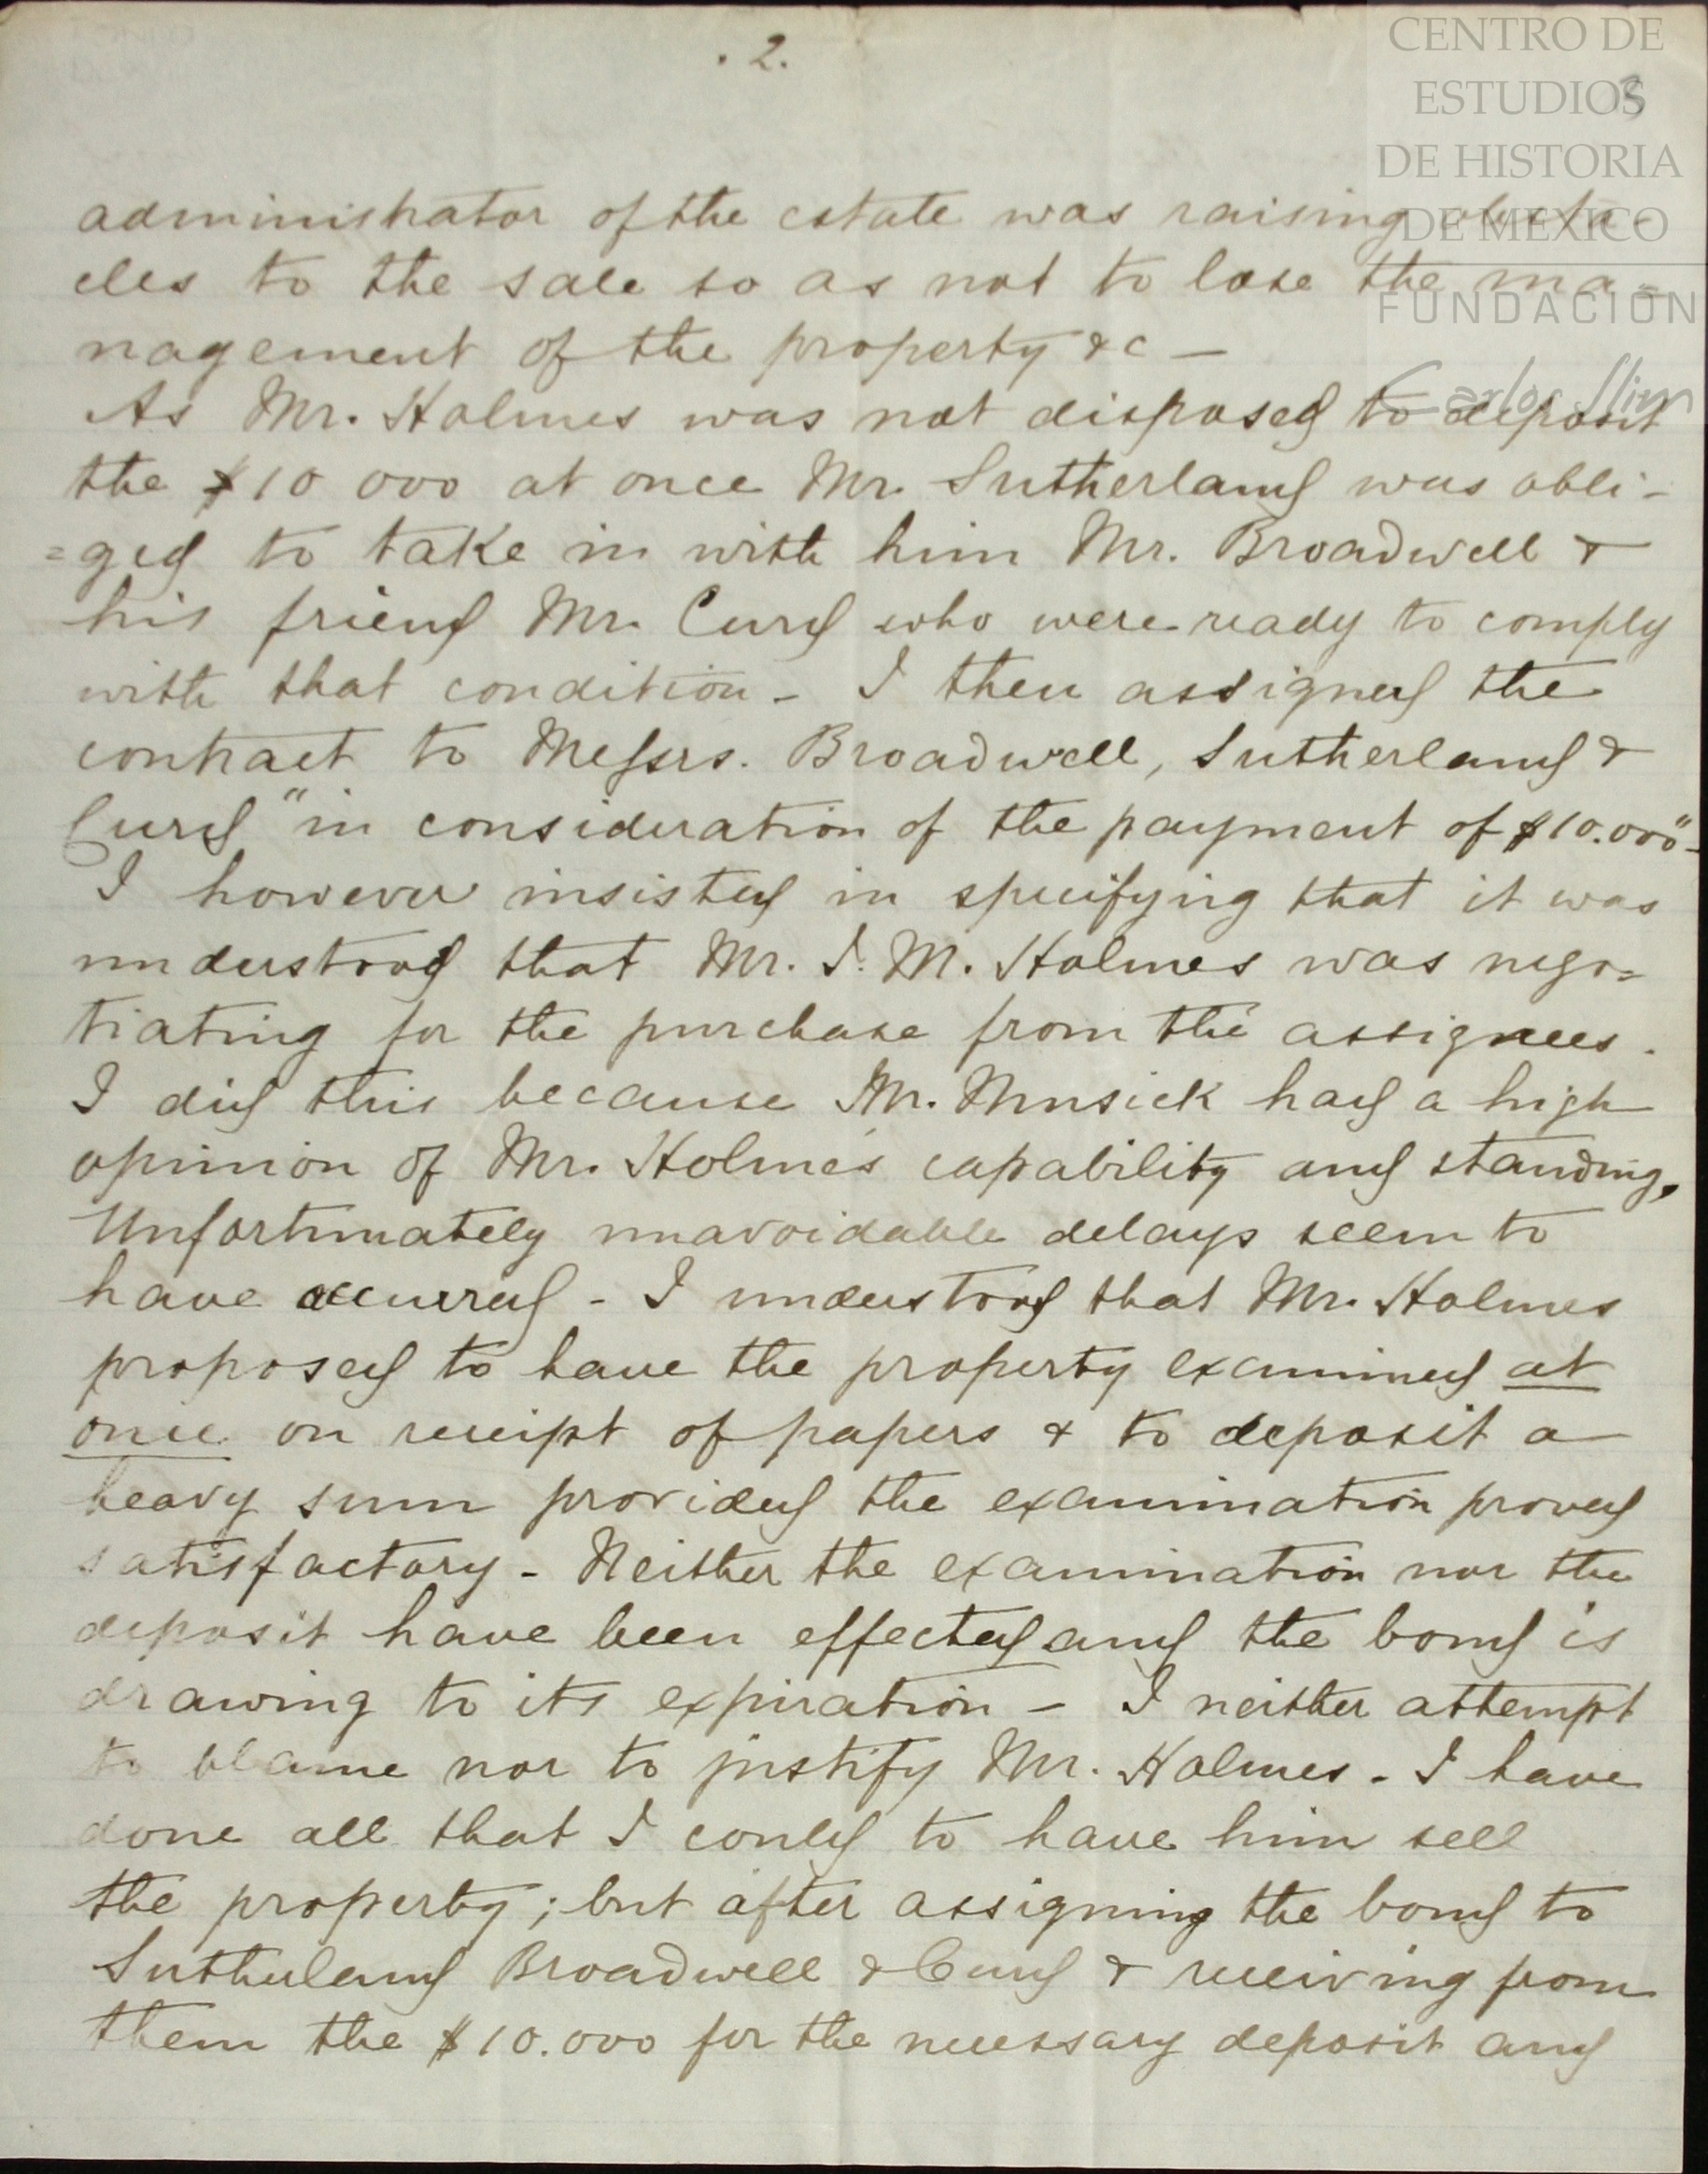 . 2.
3
CENTRO DE
ESTUDIOS
DE HISTORIA
DE MEXICO
FUNDACION
Carlos Slim
administrator of the estate was raising obsta-
cles to the sale so as not to lose the ma=
nagement of the property &c —
As Mr. Holmes was not disposed to deposit
the $10 000 at once Mr. Sutherland was obli-
=ged to take in with him Mr. Broadwell &
his friend Mr. Curd who were ready to comply
with that condition - I then assigned the
contract to Messrs. Broadwell, Sutherland &
Curd "in consideration of the payment of $10.000"-
I however insisted in specifying that it was
understood that Mr. I. M. Holmes was nego=
tiating for the purchase from the assignees.
I did this because Mr. Musick had a high
opinion of Mr. Holmes' capability and standing.
Unfortunately unavoidable delays seem to
have occurred - I understood that Mr. Holmes
proposed to have the property examined at
once on receipt of papers & to deposit a
heavy sum provided the examination proved
satisfactory - Neither the examination nor the
deposit have been effected and the bond is
drawing to its expiration - I neither attempt
to blame nor to justify Mr. Holmes - I have
done all that I could to have him sell
the property; but after assigning the bond to
Sutherland Broadwell & Curd & receiving from
them the $10.000 for the necessary deposit and